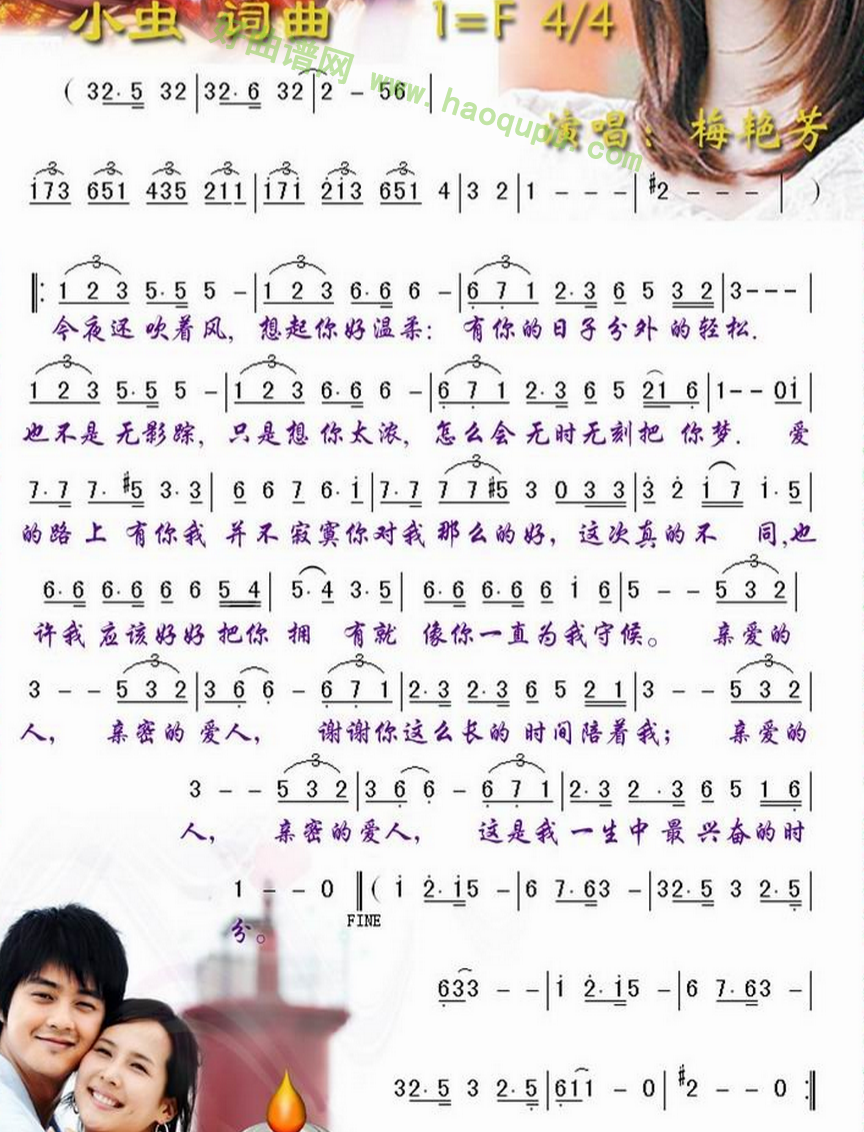 小虫 词曲 1=F 4/4
好曲谱网 www.haoqupu.com
演唱：梅艳芳
( 32·5 32|32·6 32|2 - 56|
173 651 435 211|171 213 651 4|3 2|1 - - -|#2 - - - | )
‖: 1 2 3 5·5 5 -|1 2 3 6·6 6 -|6 7 1 2·3 6 5 3 2|3---|
今夜还吹着风, 想起你好温柔: 有你的日子分外的轻松.
1 2 3 5·5 5 -|1 2 3 6·6 6 -|6 7 1 2·3 6 5 21 6|1-- 01|
也不是无影踪, 只是想你太浓, 怎么会无时无刻把你梦. 爱
7·7 7·#5 3·3| 6 6 7 6·1|7·7 7 7#5 3 0 33|3 2 1 7 1·5|
的路上有你我并不寂寞你对我那么的好, 这次真的不 同,也
6·6 6·6 6 6 5 4| 5·4 3·5| 6·6 6·6 6 1 6|5 - - 5 3 2|
许我应该好好把你拥 有就 像你一直为我守候。 亲爱的
3 - - 5 3 2|3 6 6 - 6 7 1|2·3 2·3 6 5 2 1|3 - - 5 3 2|
人, 亲密的爱人, 谢谢你这么长的时间陪着我; 亲爱的
3 - - 5 3 2|3 6 6 - 6 7 1|2·3 2·3 6 5 1 6|
人, 亲密的爱人, 这是我一生中最兴奋的时
1 - - 0 ‖( 1 2·15 -|6 7·63 -|32·5 3 2·5|
分。 FINE
633 - -|1 2·15 -|6 7·63 -|
32·5 3 2·5|611 - 0|#2 - - 0 :‖